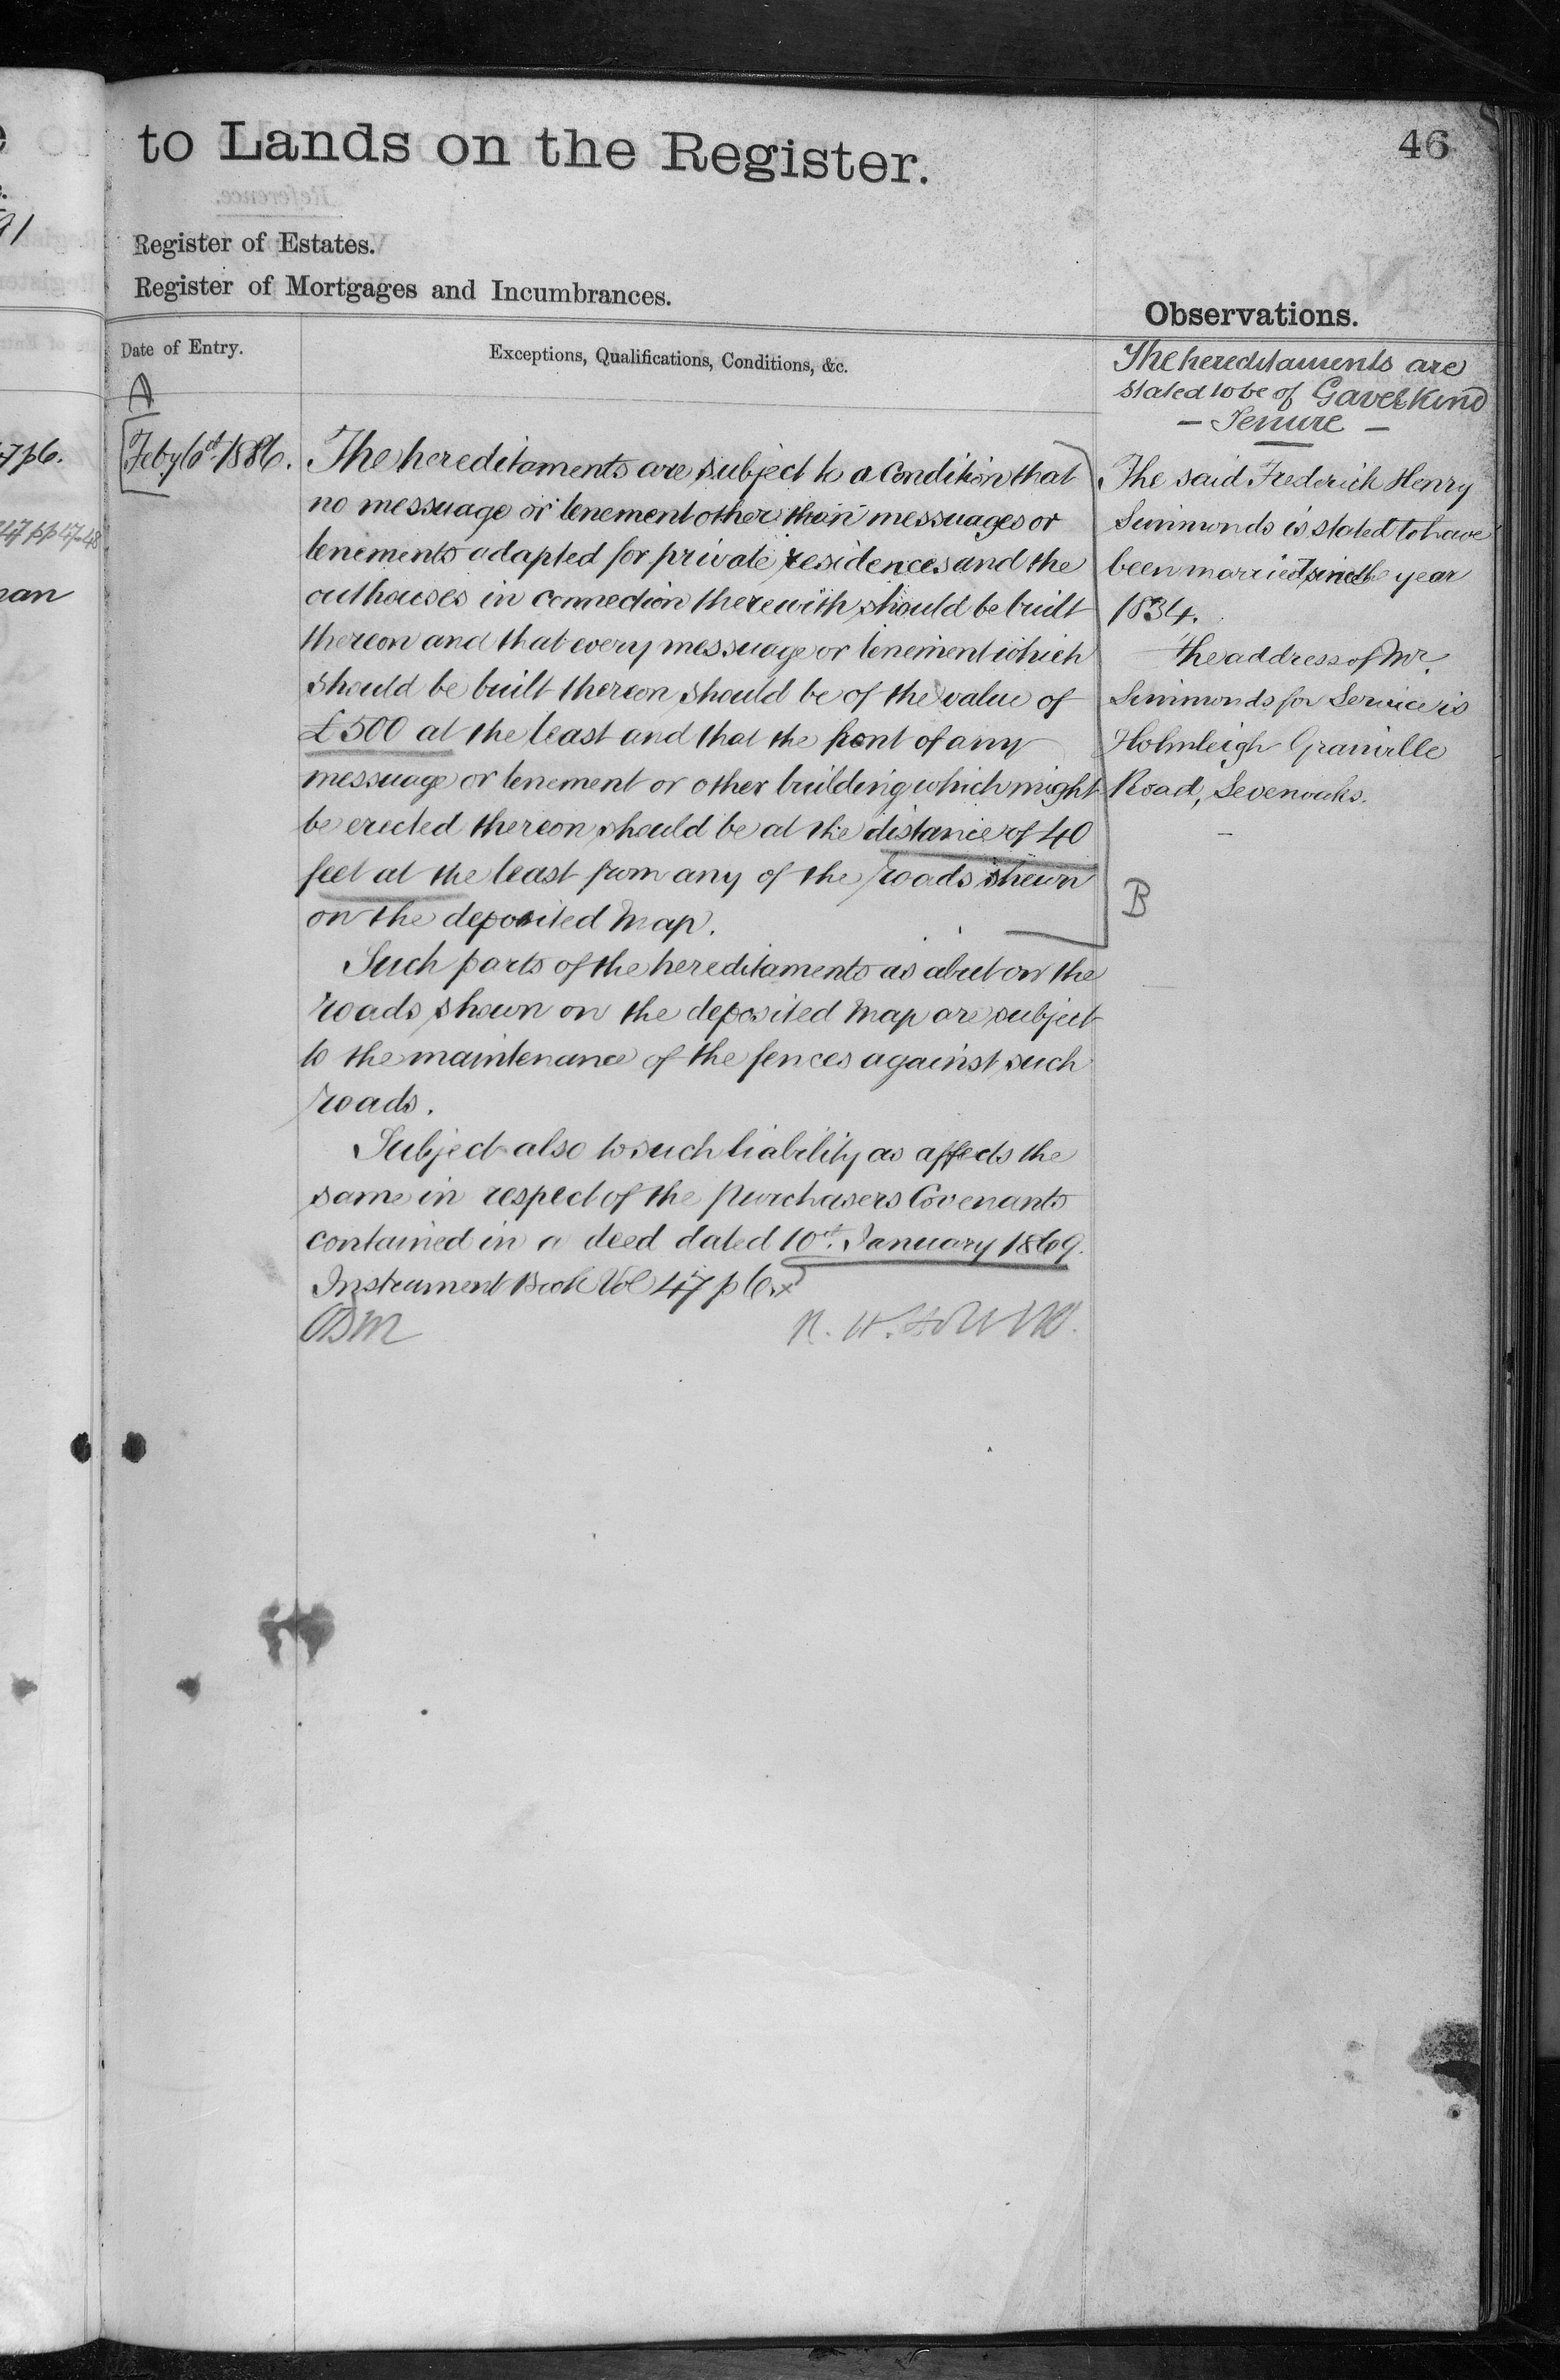 to Lands on the Register.
46
Register of Estates.
Register of Mortgages and Incumbrances.
Observations.
Date of Entry.
Exceptions, Qualifications, Conditions, &c.
The hereditaments are
stated to be of Gavelkind
- Tenure -
A
Feby 6th 1886.
The hereditaments are subject to a Condition that
no messuage or tenement other than messuages or
tenements adapted for private residences and the
outhouses in connection therewith should be built
thereon and that every messuage or tenement which
should be built thereon should be of the value of
£500 at the least and that the front of any
messuage or tenement or other building which might
be erected thereon should be at the distance of 40
feet at the least from any of the roads shewn
on the deposited Map.
Such parts of the hereditaments as abut on the
roads shewn on the deposited Map are subject
to the maintenance of the fences against such
roads.
Subject also to such liability as affects the
same in respect of the purchasers Covenants
contained in a deed dated 10th January 1869.
Instrument Book Vol 47 p 6.x
The said Frederick Henry
Simmonds is stated to have
been married since the year
1834.
The address of Mr.
Simmonds for Service is
Holmleigh Granville
Road, Sevenoaks.
-
B
91
47 p 6.
47 pp 47-48